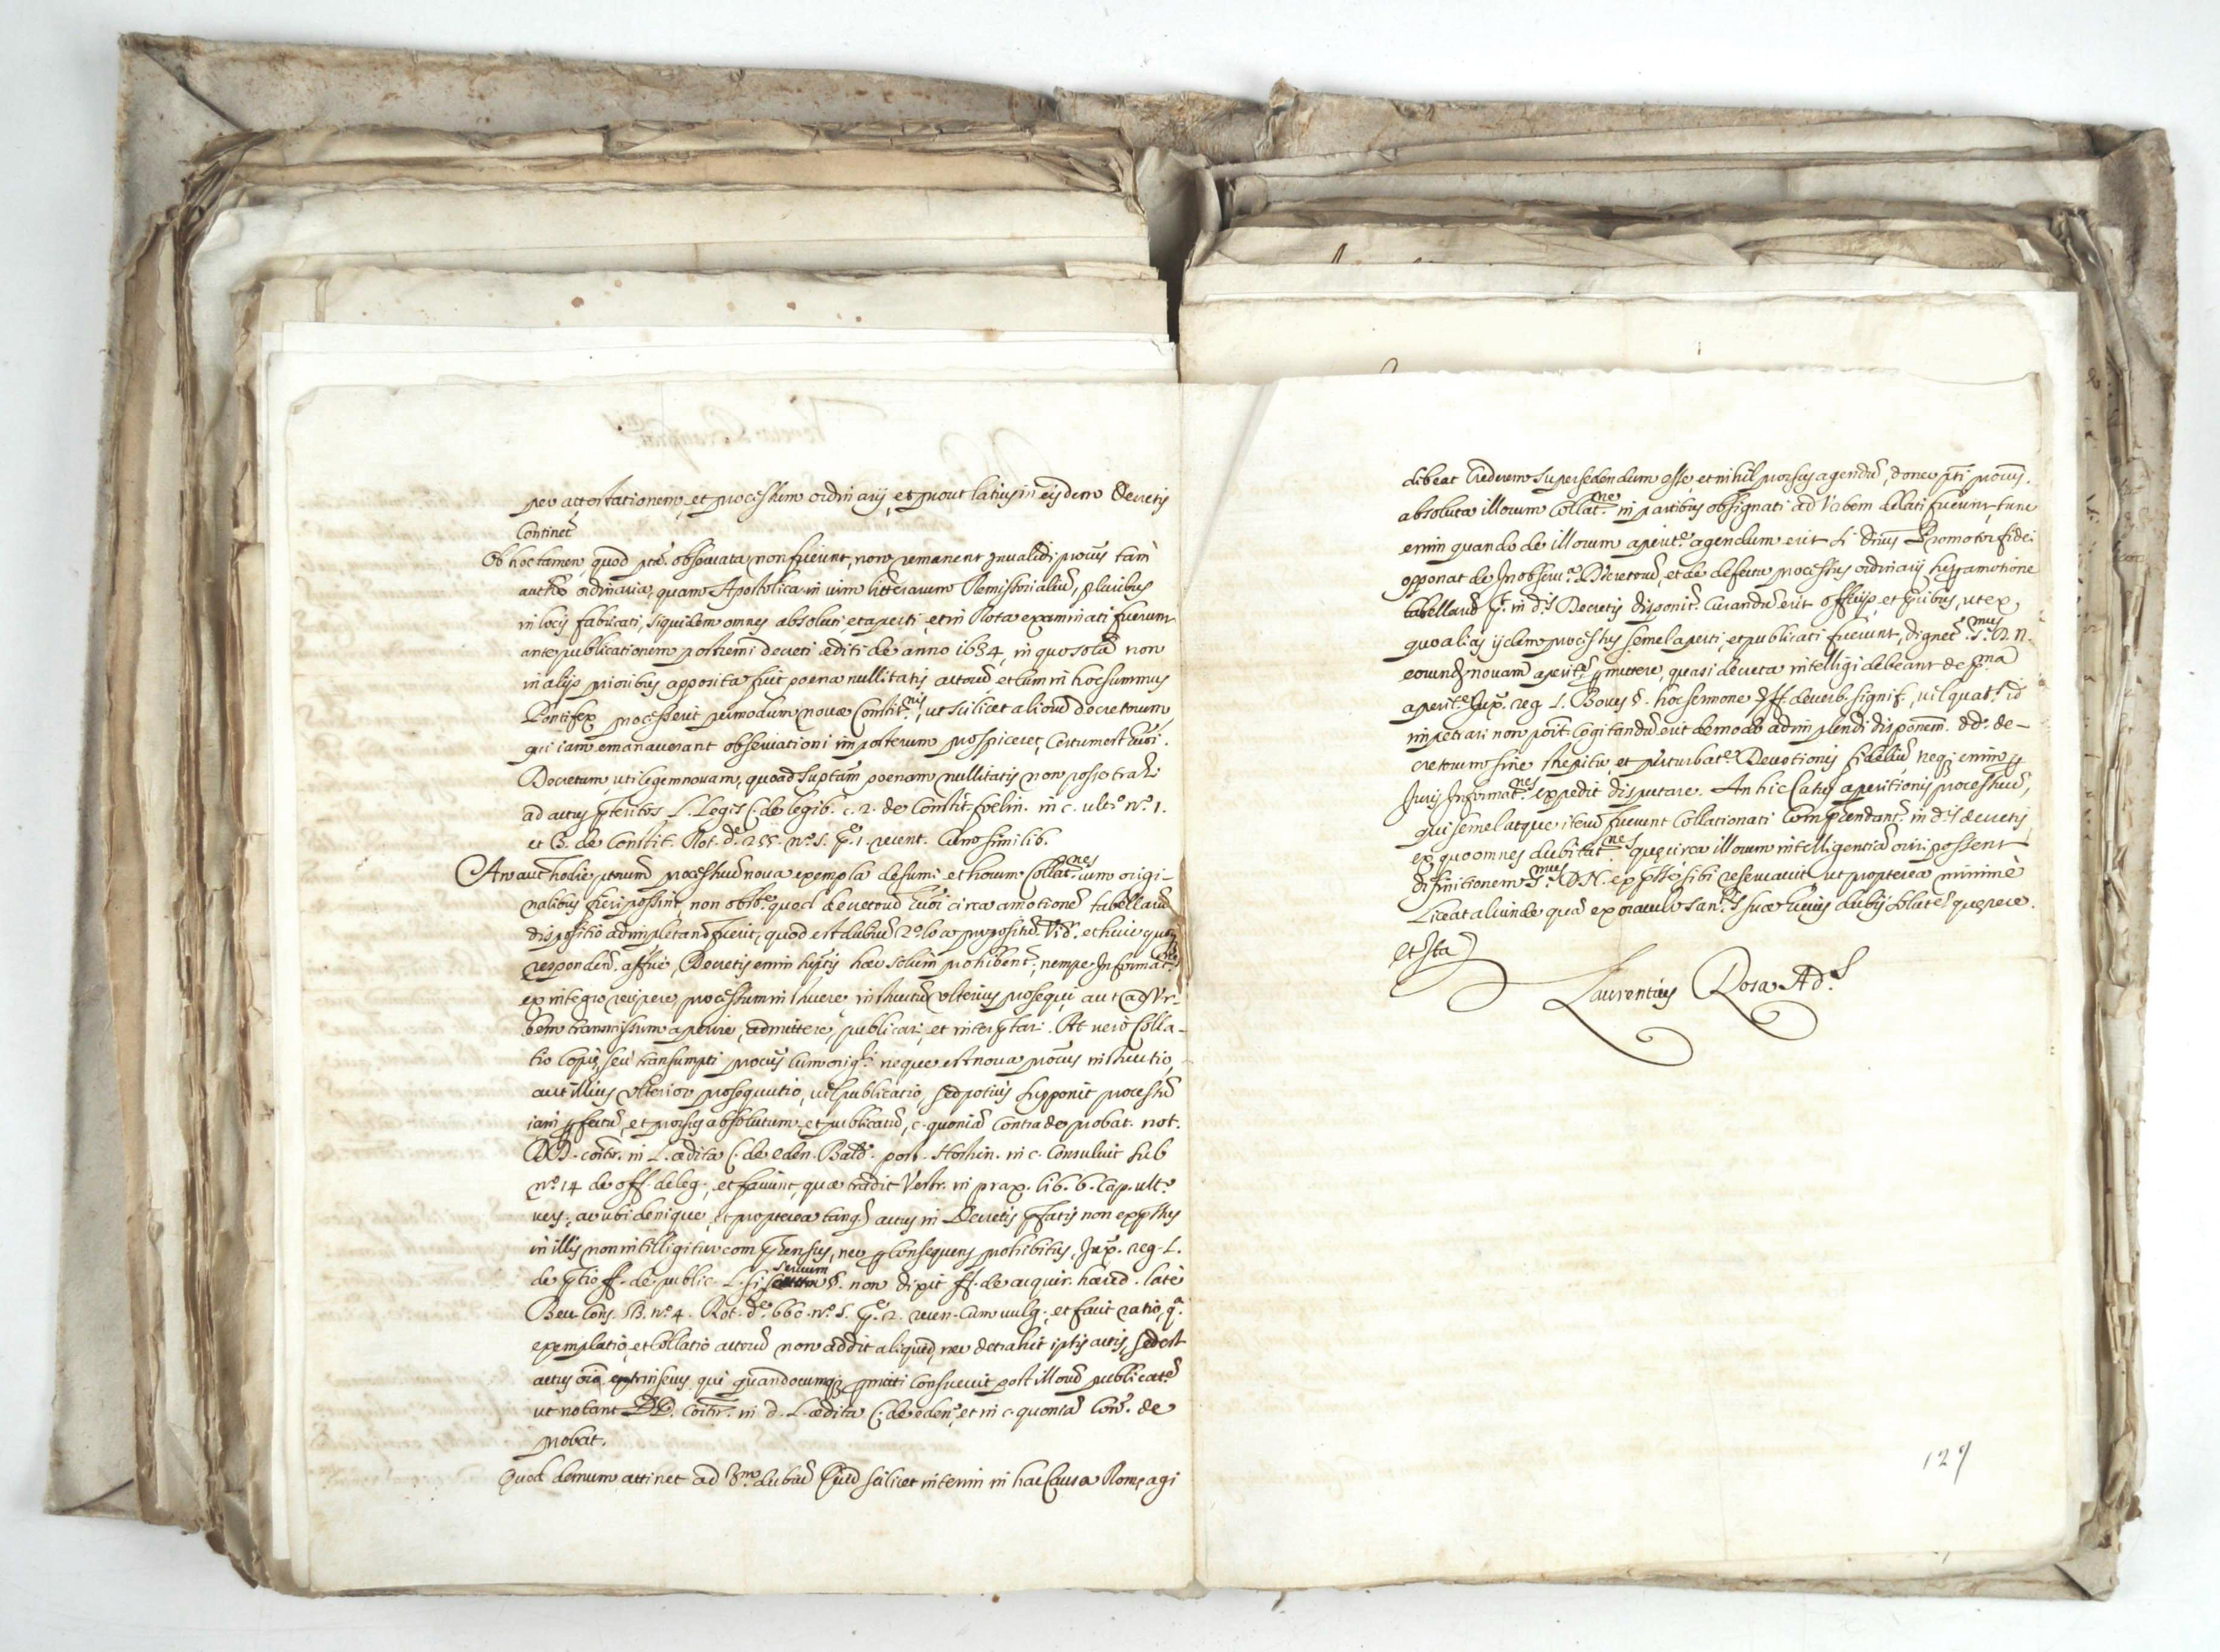 per attestationem, et processum ordinarij, et prout latius in eisdem Decretis
Continet.
Ob hoc tamen, quod pta. observata non fuerunt, non remanent Invalidi procus tam
auctte ordinaria, quam Apostolica in vim litterarum Remissorialiu, pluribus
in locis fabricati, siquidem omnes absoluti, et aperti, et in Rota examinati fuerunt
ante publicationem postremi decreti editi de anno 1634, in quo sola non
in alijs prioribus apposita fuit poena nullitatis actoru, et cum in hoc summus
Pontifex processerit per modum novae Constit.nis, ut scilicet alioru decretorum,
qui iam emanaverant observationi in posterum prospiceret, Certum est
Decretum, uti legem novam, quoad suptam poenam nullitatis non posse trahi
ad actus pteritos L. Leges C. de legib. c. 2. de Constit. Felin. in c. ult.o n.o 1.
et B. de Constit. Rot. d.e 255. n.o 5. p.e 1. recent. Cum similib.
An aut hodie ptorum processuu nova exempla desumi et horum Collat.nes cum origi-
nalibus fieri possint, non obst.e quod decretoru circa amotione tabellaru
dispositio adimpleta non fuerit, quod est dubiu 2.o loco propositu
respondend. affue, Decretis enim suptis haec solum prohibent., nempe Informat.nes
ex integro recipere, processum instruere, instructu ulterius prosequi, aut ad Ur-
bem transmissum aperire, admittere, publicari, et interptari. At vero Colla-
tio Copie, seu transumpti procus cum orig.li neque est nova procus instructio,
aut illius ulterior prosequutio, vel publicatio, sed potius supponit processu
iam pfectu, et prorsus absolutum, et publicatu, c. quonia Contra de probat. not.
DD. coiter. in L. edita C. de eden. Bald. post. Hostien. in c. Consuluit sub
n.o 14 de off. deleg., et faciunt, quae tradit Vestr. in prax. lib. 6. Cap. ult.o
vers. ac ubi denique, et propterea tanq actus in Decretis pfatis non expssus
in illis non intelligitur comprehensus, nec p Consequens prohibitus, Jux. reg. L.
de ptio ff. de public. L. si servum §. non dixit ff. de acquir. haered. late
Bec. Cons. 13. n.o 4. Rot. d.e 660. n.o 5. p.e 2. recen. Cum vulg., et facit ratio, q.a
exemplatio, et Collatio actoru non addit aliquid, nec detrahit ipsis actis, sed est
actus oio extrinsecus, qui quandocumq pmitti Consuevit post illoru publicat.e
ut notant DD. Coiter. in d. L. edita C. de eden. et in c. quonia Con. de
probat.
Quod demum attinet ad 3.m dubiu Quid scilicet interim in hac Causa Rome agi
debeat Crederem supersedendum esse, et nihil prorsus agendu, donec pti procus.
absoluta illorum Collat.ne in partibus obsignati ad Urbem delati fuerint, tunc
enim quando de illorum apert.e agendum erit si Dnus Promotor fidei
opponat de Inobserv.a Decretoru, et de defectu processus ordinarij super amotione
tabellaru pt. in d.is Decretis disponit. Curandu erit officijs, et pcibus, ut ex
quo alias ijdem processus semel aperti, et publicati fuerunt, dignet. S.mus D. N.
eorund novam apert.e pmittere, quasi decreta intelligi debeant de p.ma
apert.e Jux. reg. L. Boves §. hoc sermone ff. de verb. signif., vel quat.s id
impetrari non poit. Cogitandu erit de modo adimplendi disponem. dd. de-
cretorum sine strepitu, et perturbat.e Devotionis fideliu, neq enim p
Juris Informat.nes expedit disputare. An hic Casus apertionis processuu,
qui semel atque iteru fuerunt Collationati Compndant. in d.is decretis
ex quo omnes dubitat.nes que circa illorum intelligentia oriri possent
difinitionem S.mus D. N. expsse sibi reservavit ut propterea minime
Liceat aliunde qua ex oraculo San.tis suae huius dubij solut.e querere.
et Ita
Laurentius Rosa Ad.s
129